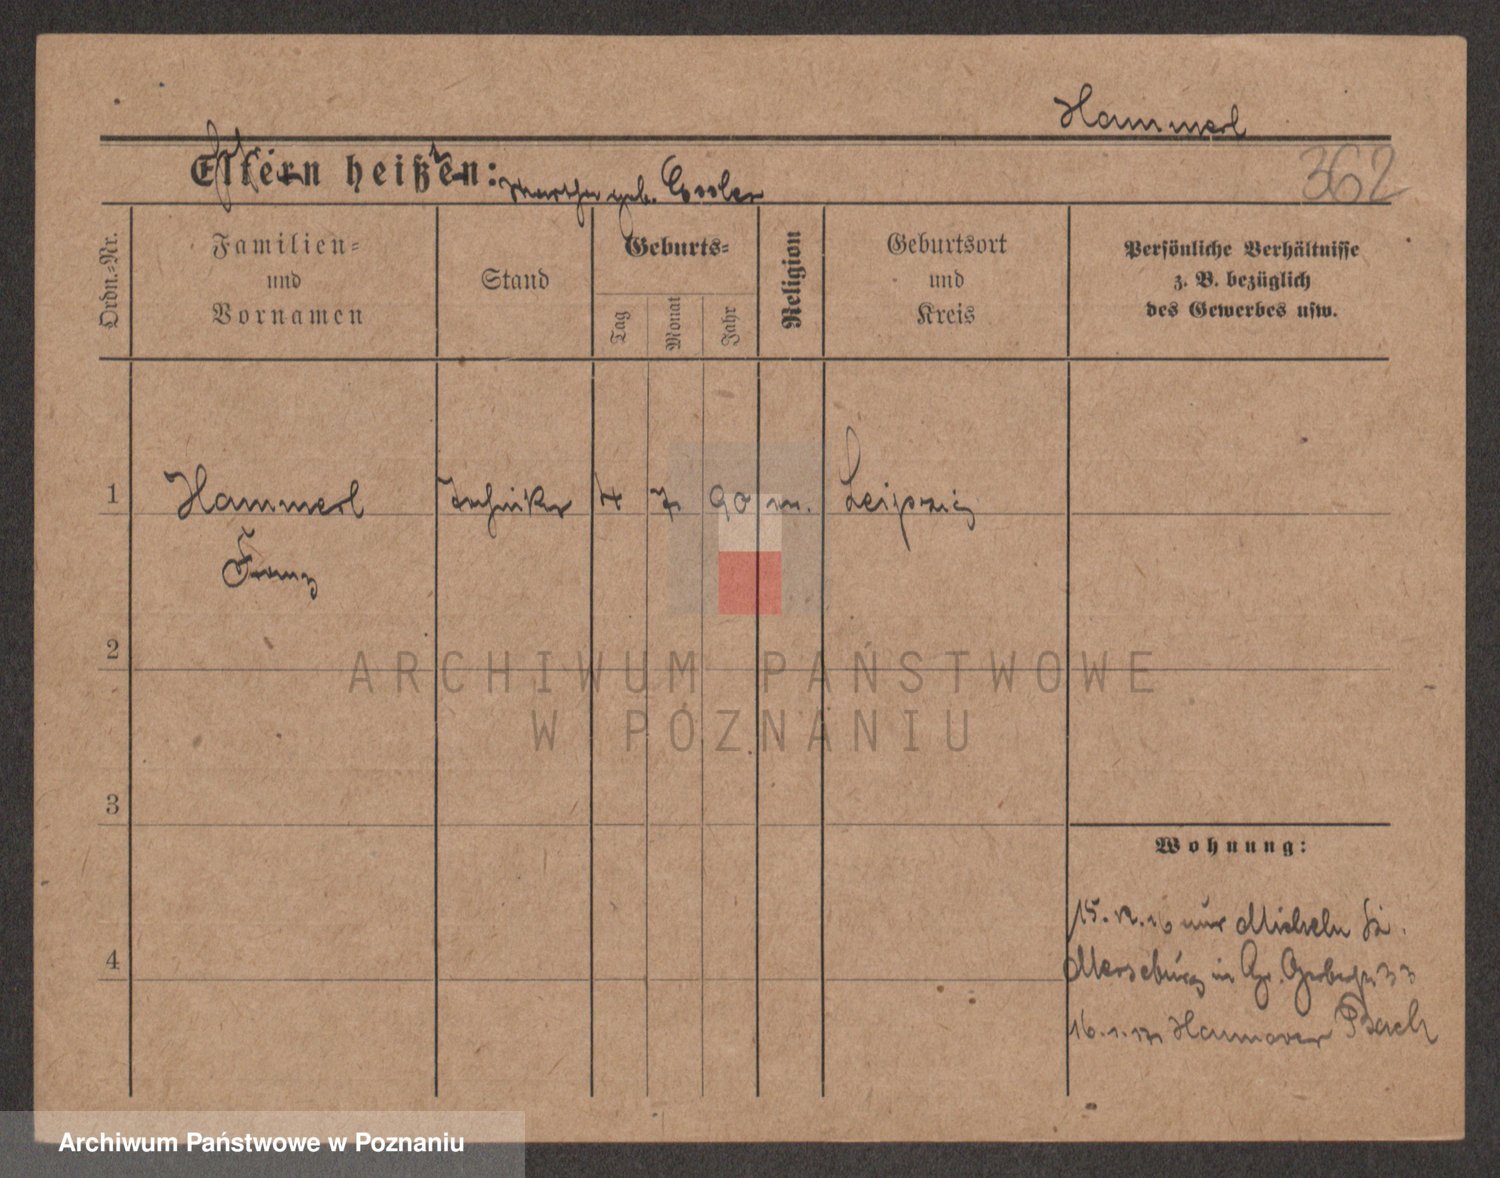 Hammerl
362
Eltern heißen:
Martha geb. Essler
Ordn.-Nr.
Familien-
und
Vornamen
Stand
Geburts-
Tag
Monat
Jahr
Religion
Geburtsort
und
Kreis
Persönliche Verhältnisse
z. B. bezüglich
des Gewerbes usw.
1 Hammerl Techniker 4 7 90 m. Leipzig
Franz
2
3
4
Wohnung:
15. 12. 16 aus Micheln bei
Merseburg in Gr. Gerberstr 33
16. 1. 17 Hannover
ARCHIWUM PAŃSTWOWE
W POZNANIU
Archiwum Państwowe w Poznaniu